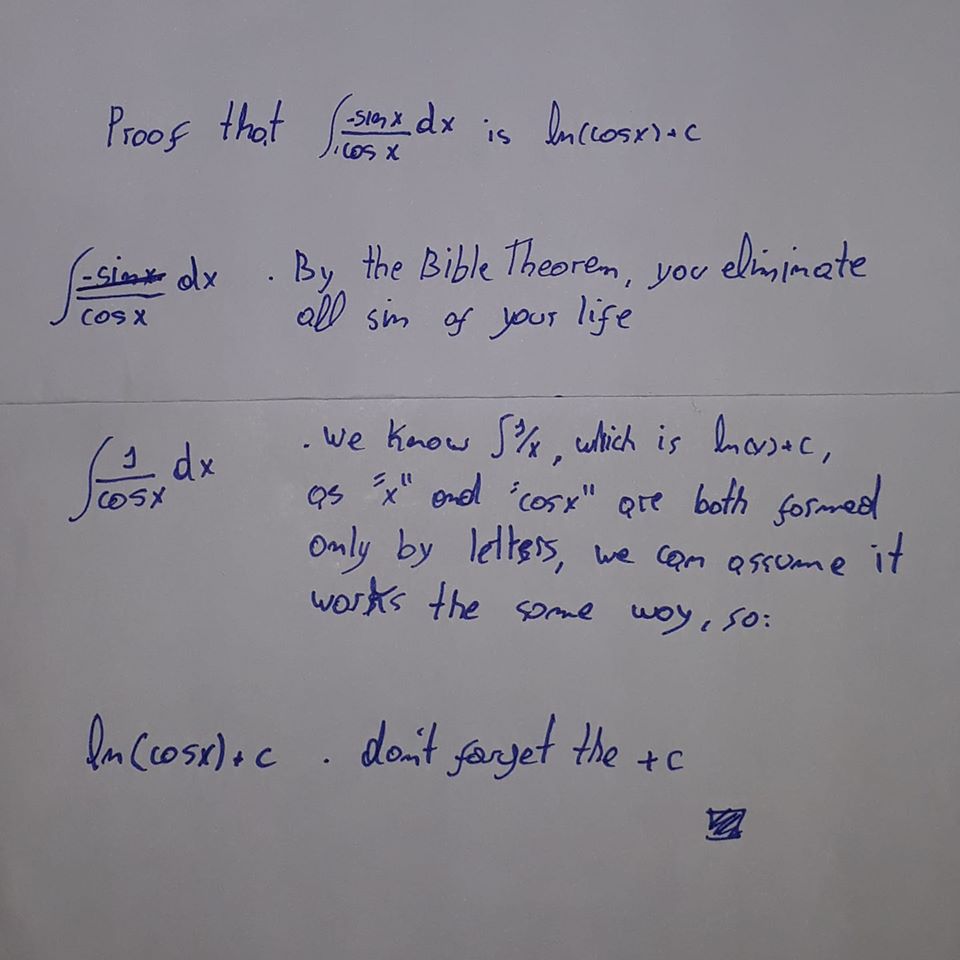 Proof that ∫ -sin x / cos x dx is ln(cosx)+c
∫ -sinx / cosx dx . By the Bible Theorem, you eliminate
all sin of your life
∫ 1 / cosx dx . We know ∫1/x, which is ln(x)+c,
as "x" and "cosx" are both formed
only by letters, we can assume it
works the same way, so:
ln(cosx)+c . don't forget the +c